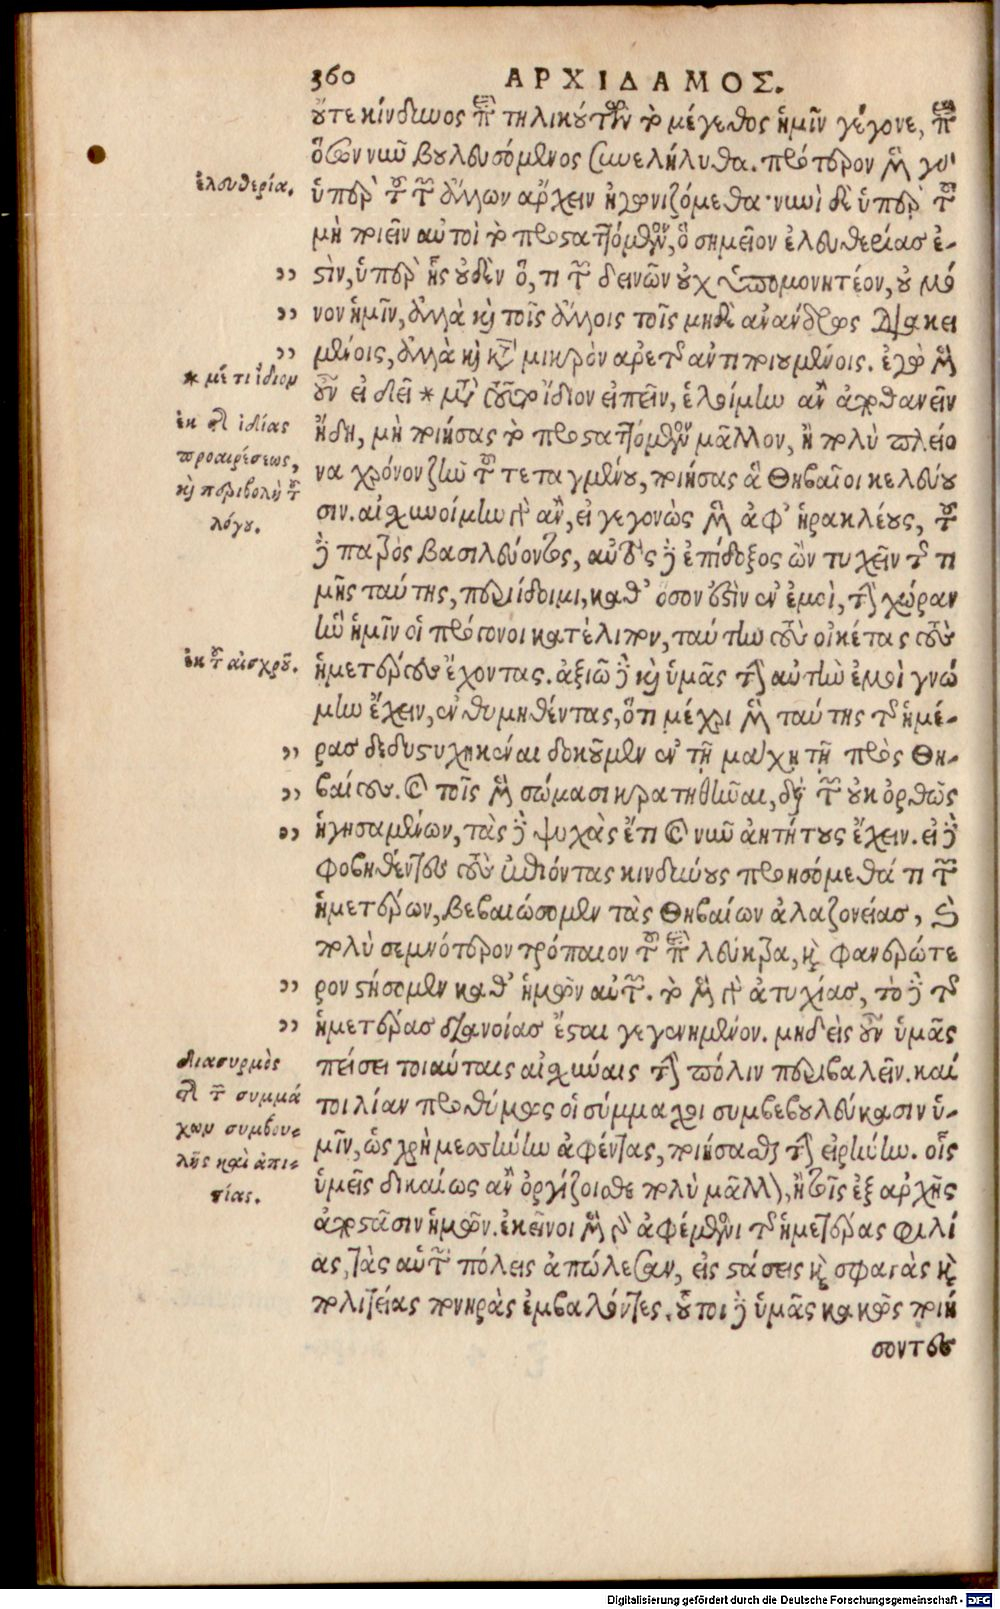 360 ΑΡΧΙΔΑΜΟΣ.
οὔτε κίνδυνος περὶ τηλικούτων τὸ μέγεθος ἡμῖν γέγονε, περὶ
ὅσων νῦν βουλευσόμενος συνελήλυθα. πρότερον μὲν γὸ
ὑπὲρ τοῦ τῶν ἄλλων ἄρχειν ἠγωνιζόμεθα· νυνὶ δὲ ὑπὲρ τοῦ
μὴ ποιεῖν αὐτοὶ τὸ προσταττόμενον, ὃ σημεῖον ἐλευθερίας ἐ-
στὶν, ὑπὲρ ἧς οὐδὲν ὅ, τι τῶν δεινῶν οὐχ ὑπομονητέον, οὐ μό
νον ἡμῖν, ἀλλὰ καὶ τοῖς ἄλλοις τοῖς μηδὲ ἀνάνδρως διακει
μένοις, ἀλλὰ καὶ κατὰ μικρὸν ἀρετῆς ἀντιποιουμένοις. ἐγὼ μὲν
οὖν εἰ δεῖ * μετὰ τοῦτο ἴδιον εἰπεῖν, ἑλοίμην ἂν ἀποθανεῖν
ἤδη, μὴ ποιήσας τὸ προσταττόμενον μᾶλλον, ἢ πολὺ πλείο
να χρόνον ζῆν τοῦ τεταγμένου, ποιήσας ἃ Θηβαῖοι κελεύου
σιν. αἰσχυνοίμην γὰρ ἂν, εἰ γεγονὼς μὲν ἀφ' ἡρακλέους, τοῦ
δὲ πατρὸς βασιλεύοντος, αὐτὸς δὲ ἐπίδοξος ὢν τυχεῖν τῆς τι
μῆς ταύτης, περιίδοιμι, καθ' ὅσον ἐστὶν ἐν ἐμοὶ, τὴν χώραν
ἣν ἡμῖν οἱ πρόγονοι κατέλιπον, ταύτην τοὺς οἰκέτας τοὺς
ἡμετέρους ἔχοντας. ἀξιῶ δὲ καὶ ὑμᾶς τὴν αὐτὴν ἐμοὶ γνώ
μην ἔχειν, ἐνθυμηθέντας, ὅτι μέχρι μὲν ταύτης τῆς ἡμέ-
ρας δεδυστυχηκέναι δοκοῦμεν ἐν τῇ μάχῃ τῇ πρὸς Θη-
βαίους. καὶ τοῖς μὲν σώμασι κρατηθῆναι, διὰ τῶν οὐκ ὀρθῶς
ἡγησαμένων, τὰς δὲ ψυχὰς ἔτι καὶ νῦν ἀηττήτους ἔχειν. εἰ δὲ
φοβηθέντες τοὺς ἐπιόντας κινδύνους προησόμεθά τι τῶν
ἡμετέρων, βεβαιώσομεν τὰς Θηβαίων ἀλαζονείας, καὶ
πολὺ σεμνότερον τρόπαιον τοῦ περὶ λεύκτρα, καὶ φανερώτε
ρον στήσομεν καθ' ἡμῶν αὐτῶν. τὸ μὲν γὰρ ἀτυχίας, τὸ δὲ τῆς
ἡμετέρας διανοίας ἔσται γεγενημένον. μηδεὶς οὖν ὑμᾶς
πείσει τοιαύταις αἰσχύναις τὴν πόλιν περιβαλεῖν. καί
τοι λίαν προθύμως οἱ σύμμαχοι συμβεβουλεύκασιν ὑ-
μῖν, ὡς χρὴ μεσσήνην ἀφέντας, ποιήσασθαι τὴν εἰρήνην. οἷς
ὑμεῖς δικαίως ἂν ὀργίζοισθε πολὺ μᾶλλον, ἢ τοῖς ἐξ ἀρχῆς
ἀποστᾶσιν ἡμῶν. ἐκεῖνοι μὲν γὰρ ἀφέμενοι τῆς ἡμετέρας φιλί
ας, τὰς αὑτῶν πόλεις ἀπώλεσαν, εἰς στάσεις καὶ σφαγὰς καὶ
πολιτείας πονηρὰς ἐμβαλόντες. οὗτοι δὲ ὑμᾶς κακῶς ποιή
σοντες
ἐλευθερία.
* μέ τι ἴδιον
ἐκ τῆς ἰδίας
προαιρέσεως,
καὶ περιβολὴ τοῦ
λόγου.
ἐκ τοῦ αἰσχροῦ.
διασυρμὸς
τῆς τῶν συμμά
χων συμβου-
λῆς καὶ ἀπι-
στίας.
Digitalisierung gefördert durch die Deutsche Forschungsgemeinschaft - DFG